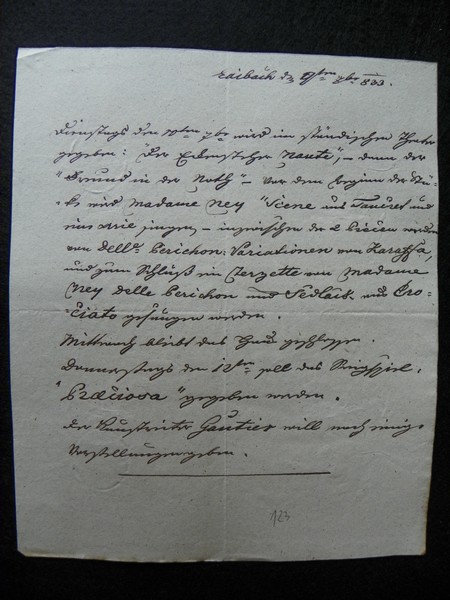 Laibach den 9ten 7br 833.
Dienstags den 10ten 7br wird im ständischen Theater
gegeben: "Der Eckensteher Naute", – dann der
"Freund in der Noth" – Vor dem Beginn der Stü-
ke wird Madame Ney "Scene aus Tancred und
eine Arie singen, – inzwischen der 2 Piecen werden
von Delle Perichon Variationen von Karaffa,
und zum Schluß ein Terzette von Madame
Ney Delle Perichon und Sedlack aus Cro-
ciato gesungen werden.
Mittwoch bleibt das Haus geschlossen.
Donnerstags den 12ten soll das Singspiel.
"Præciosa" gegeben werden.
Der Kunstreiter Gautier will noch einige
Vorstellungen geben.
123